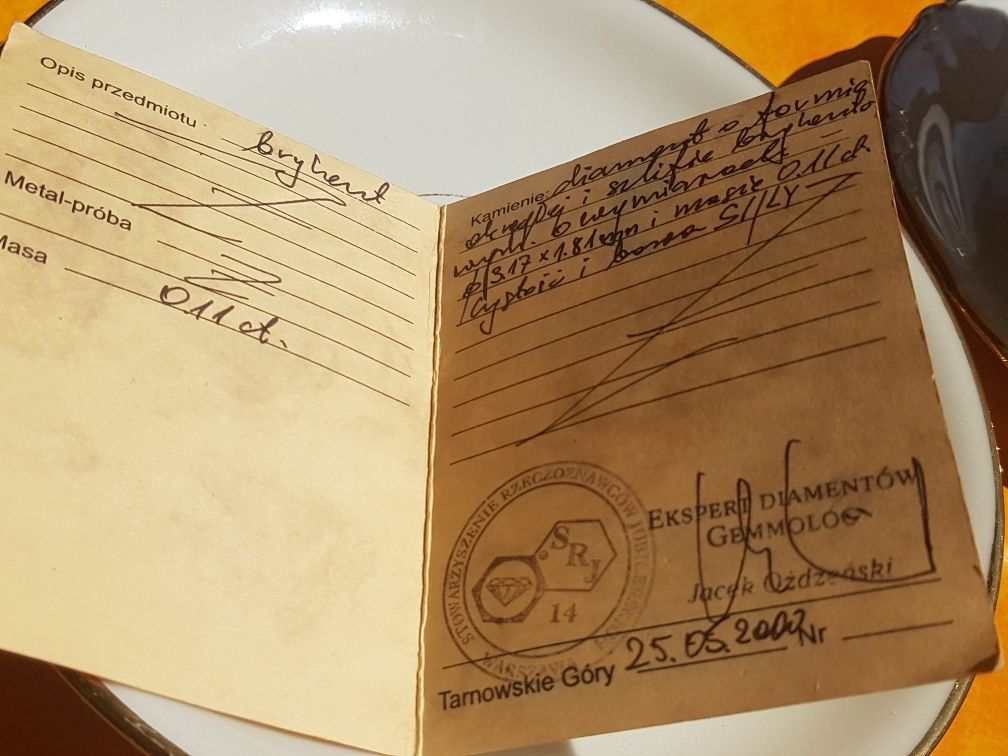 Opis przedmiotu brylant
Metal-próba
Masa 0.11 ct.
Kamienie: diament o formie
okrągłej i szlifie brylanto
wym. o wymiarach
ϕ 3.17 x 1.81mm i masie 0.11 ct.
Czystość i barwa SI/LY
STOWARZYSZENIE RZECZOZNAWCÓW JUBILERSKICH
WARSZAWA
SRJ
14
EKSPERT DIAMENTÓW
GEMMOLOG
Jacek
Tarnowskie Góry 25.05. Nr